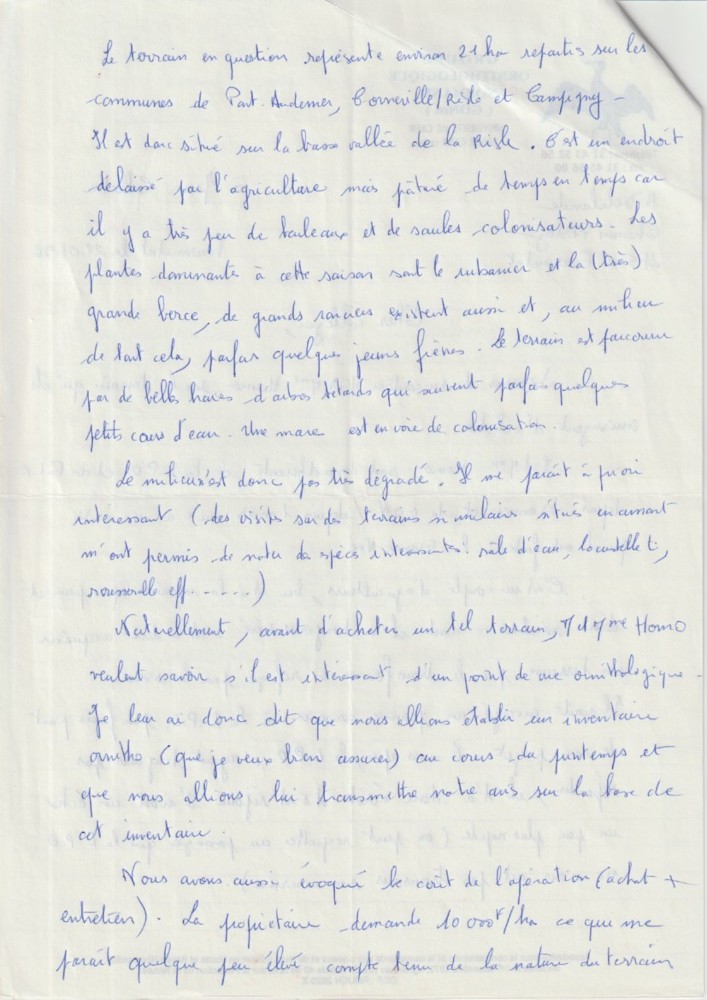 Le terrain en question représente environ 21 ha repartis sur les
communes de Pont. Audemer, Corneville/Risle et Campigny -
Il est donc situé sur la basse vallée de la Risle. C'est un endroit
délaissé par l'agriculture mais pâturé de temps en temps car
il y a très peu de bouleaux et de saules colonisateurs. Les
plantes dominantes à cette saison sont le rubanier et la (très)
grande berce, de grands roncier existent aussi et, au milieu
de tout cela, parfois quelques jeunes frênes. Le terrain est parcouru
par de belles haies d'arbres têtards qui suivent parfois quelques
petits cours d'eau. Une mare est en voie de colonisation.
Le milieu n'est donc pas très dégradé. Il me paraît à priori
intéressant (des visites sur des terrains similaires situés en amont
m'ont permis de noter des espèces intéressantes: râle d'eau, locustelle t.,
rousserolle eff. ....)
Naturellement, avant d'acheter un tel terrain, M et Mme Homo
veulent savoir s'il est intéressant d'un point de vue ornithologique.
Je leur ai donc dit que nous allions établir un inventaire
ornitho (que je veux bien assurer) au cours du printemps et
que nous allions lui transmettre notre avis sur la base de
cet inventaire.
Nous avons aussi évoqué le coût de l'opération (achat +
entretien). La propriétaire demande 10 000F/ha ce que me
paraît quelque peu élevé compte tenu de la nature du terrain